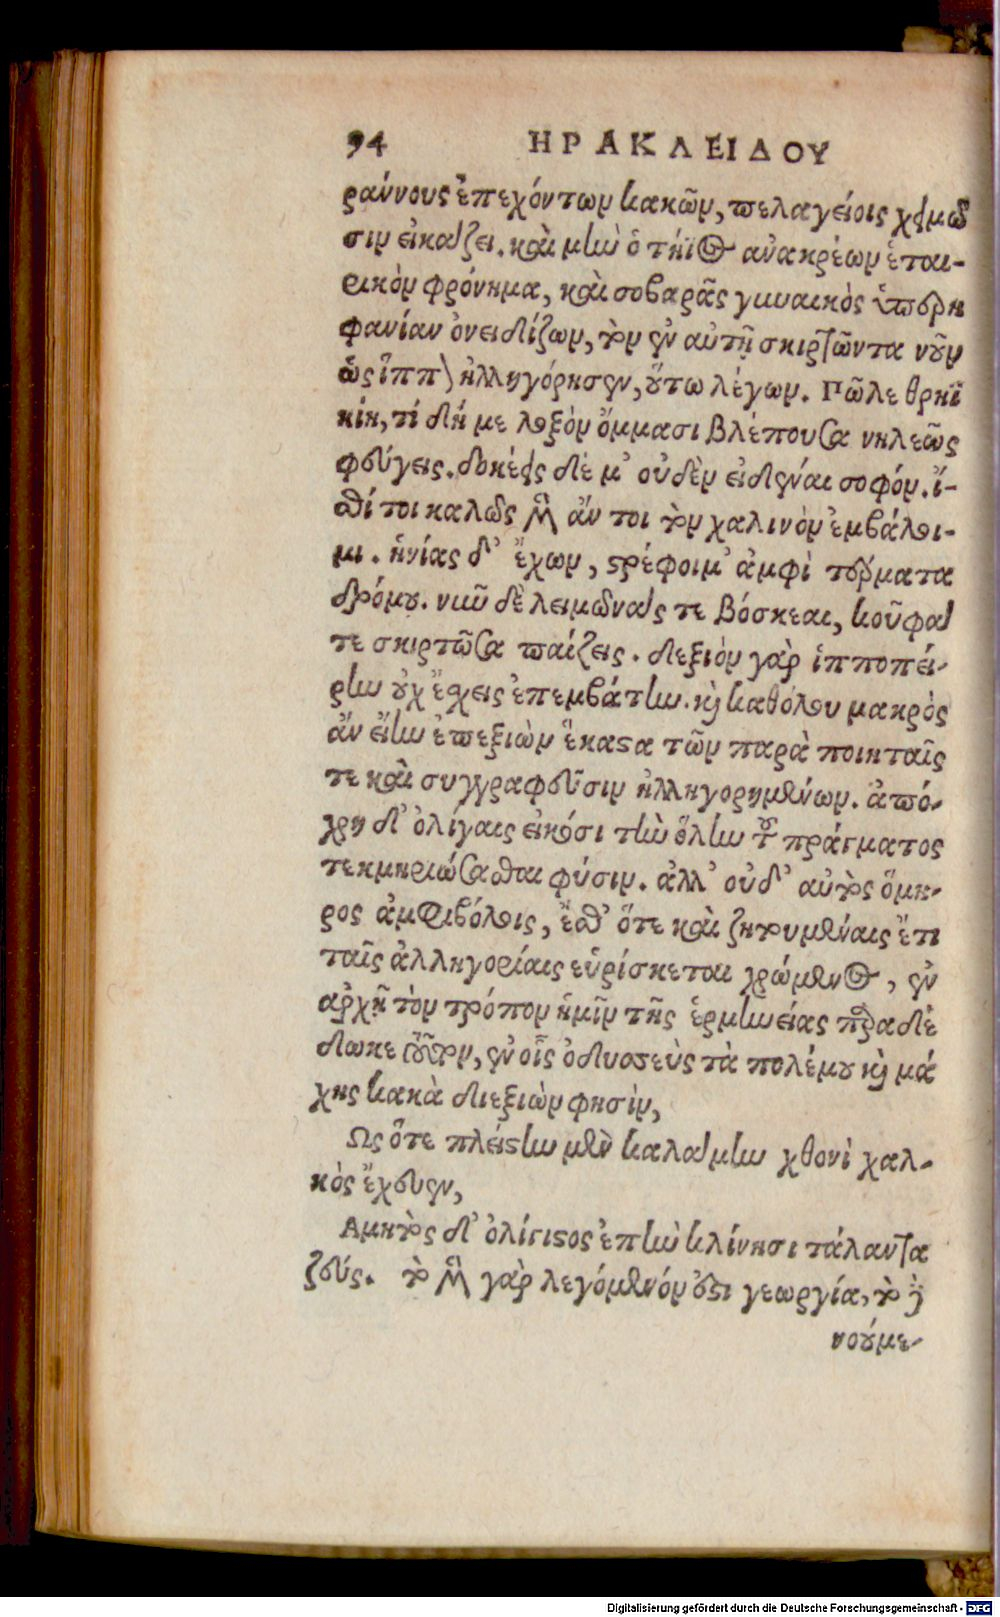 94 ΗΡΑΚΛΕΙΔΟΥ
ραννους ἐπεχόντων κακῶν, πελαγείοις χειμῶ
σιν εἰκάζει. καὶ μὴν ὁ τήϊος ἀνακρέων ἑται-
ρικὸν φρόνημα, καὶ σοβαρᾶς γυναικὸς ὑπερη
φανίαν ὀνειδίζων, τὸν ἐν αὐτῇ σκιρτῶντα νοῦν
ὡς ἵππον ἠλληγόρησεν, οὕτω λέγων. Πῶλε θρηϊ
κίη, τί δή με λοξὸν ὄμμασι βλέπουσα νηλεῶς
φεύγεις. δοκέεις δέ μ’ οὐδὲν εἰδέναι σοφόν. ἴ-
σθι τοι καλῶς μὲν ἄν τοι τὸν χαλινὸν ἐμβάλοι-
μι. ἡνίας δ’ ἔχων, στρέφοιμ’ ἀμφὶ τέρματα
δρόμου. νῦν δὲ λειμῶνάς τε βόσκεαι, κοῦφά
τε σκιρτῶσα παίζεις. δεξιὸν γὰρ ἱπποπεί-
ρην οὐχ ἔχεις ἐπεμβάτην. καὶ καθόλου μακρὸς
ἂν εἴην ἐπεξιὼν ἕκαστα τῶν παρὰ ποιηταῖς
τε καὶ συγγραφεῦσιν ἠλληγορημένων. ἀπό-
χρη δ’ ὀλίγαις εἰκόσι τὴν ὅλην τοῦ πράγματος
τεκμηριώσασθαι φύσιν. ἀλλ’ οὐδ’ αὐτὸς ὅμη-
ρος ἀμφιβόλοις, ἔσθ’ ὅτε καὶ ζητουμέναις ἔτι
ταῖς ἀλληγορίαις εὑρίσκεται χρώμενος, ἐν
ἀρχῇ τὸν τρόπον ἡμῖν τῆς ἑρμηνείας παραδέ
δωκε τοῦτον, ἐν οἷς ὀδυσσεὺς τὰ πολέμου καὶ μά
χης κακὰ διεξιὼν φησὶν,
Ως ὅτε πλείστην μὲν καλάμην χθονὶ χαλ-
κὸς ἔχευεν,
Αμητὸς δ’ ὀλίγιστος ἐπὴν κλίνησι τάλαντα
ζεύς. τὸ μὲν γὰρ λεγόμενόν ἐστι γεωργία, τὸ δὲ
νούμε-
Digitalisierung gefördert durch die Deutsche Forschungsgemeinschaft - DFG